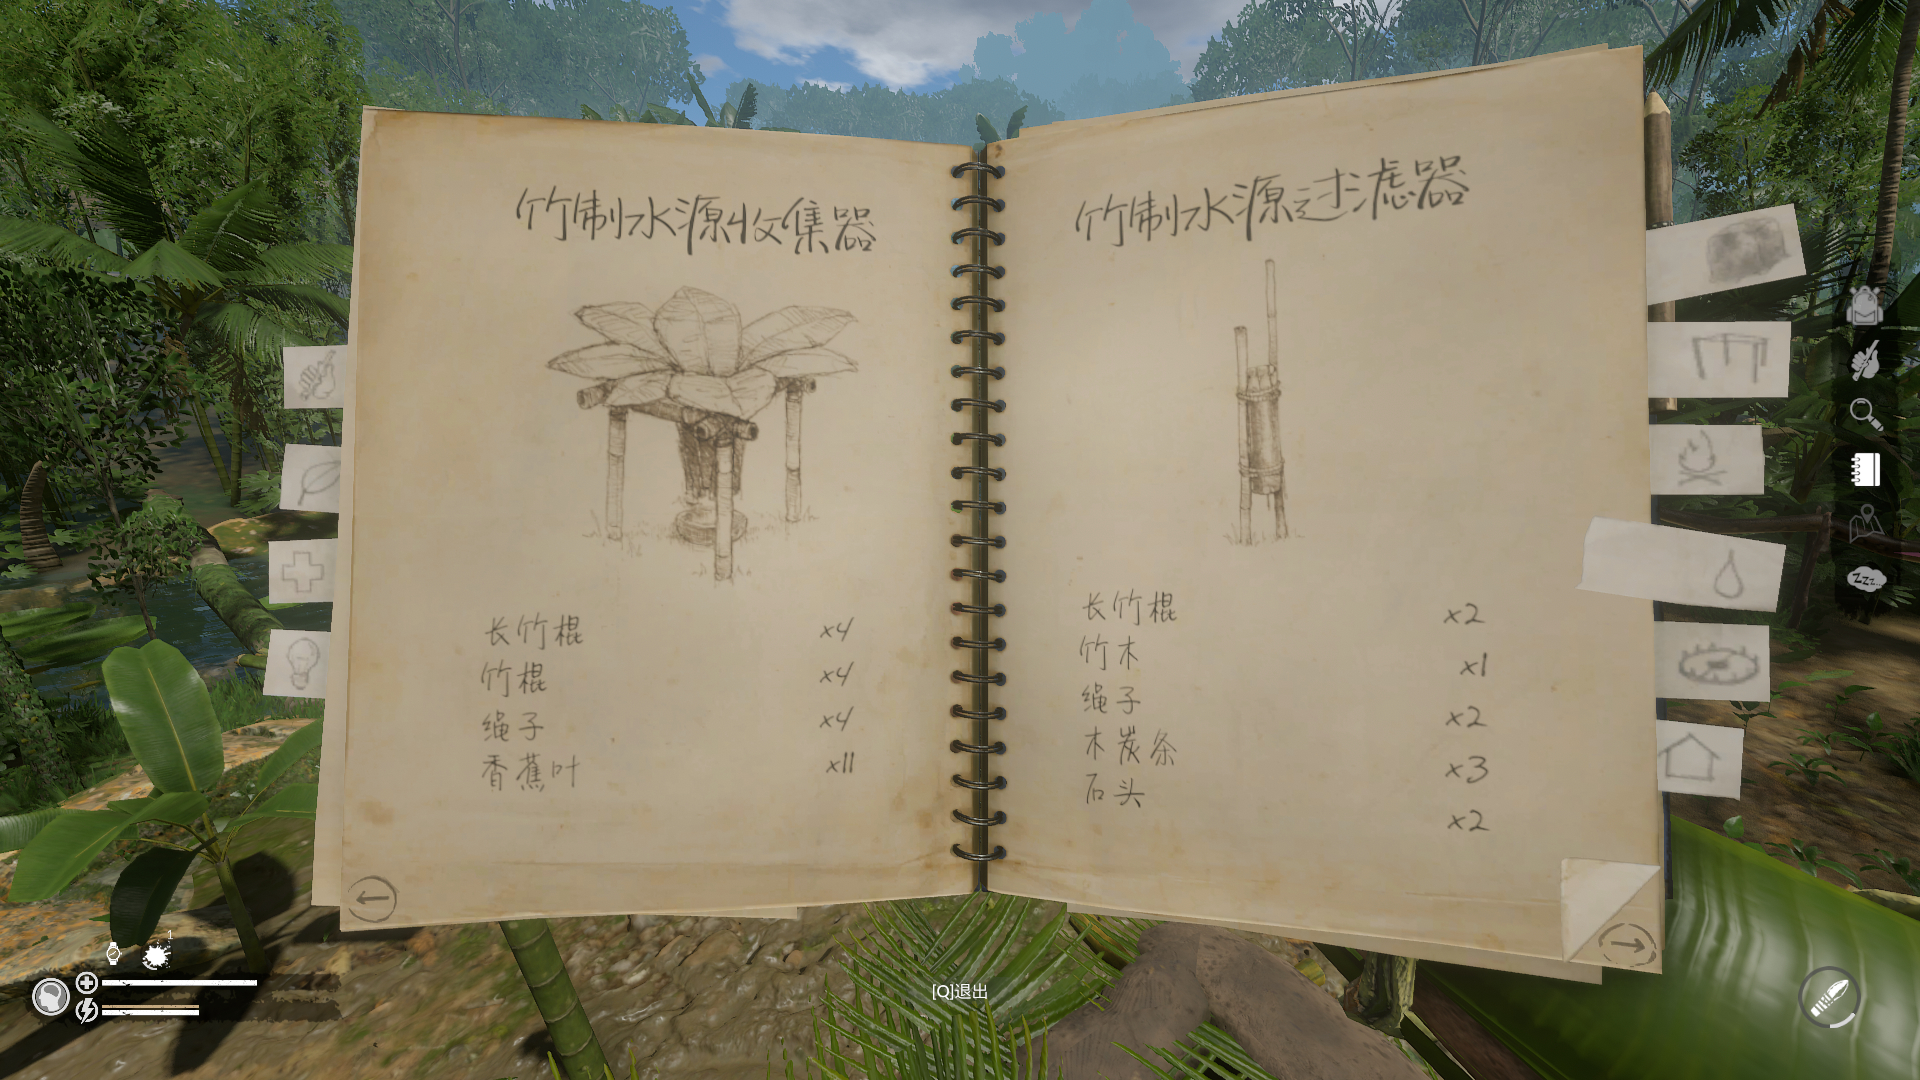 竹制水源收集器
长竹棍 x4
竹棍 x4
绳子 x4
香蕉叶 x11
竹制水源过滤器
长竹棍 x2
竹木 x1
绳子 x2
木炭条 x3
石头 x2
1
zzz...
[Q]退出